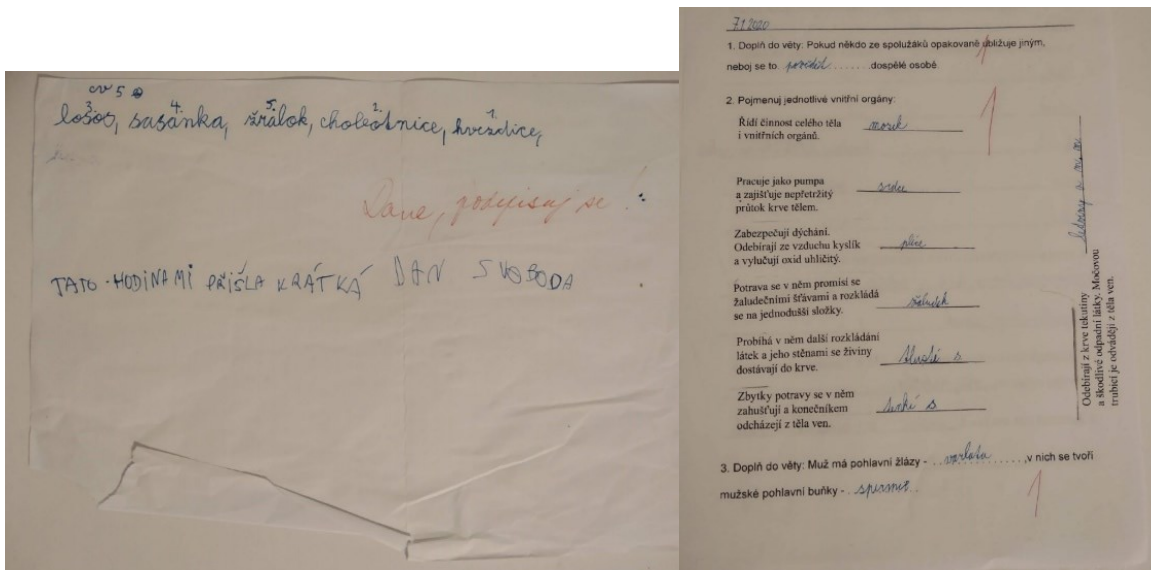 cv 5
3. 4. 5. 2. 1.
losos, sasanka, žralok, chobotnice, hvězdice,
Dane, podepisuj se!
TATO-HODINAMI PŘIŠLA KRÁTKÁ DAN SVOBODA
7.1.2020
1. Doplň do věty: Pokud někdo ze spolužáků opakovaně ubližuje jiným,
neboj se to ........dospělé osobě.
2. Pojmenuj jednotlivé vnitřní orgány:
Řídí činnost celého těla
i vnitřních orgánů.
mozek
Pracuje jako pumpa
a zajišťuje nepřetržitý
průtok krve tělem.
srdce
Zabezpečují dýchání.
Odebírají ze vzduchu kyslík
a vylučují oxid uhličitý.
plíce
Potrava se v něm promísí se
žaludečními šťávami a rozkládá
se na jednodušší složky.
žaludek
Probíhá v něm další rozkládání
látek a jeho stěnami se živiny
dostávají do krve.
tlusté s
Zbytky potravy se v něm
zahušťují a konečníkem
odcházejí z těla ven.
tenké s
ledviny a
Odebírají z krve tekutiny
a škodlivé odpadní látky. Močovou
trubicí je odvádějí z těla ven.
3. Doplň do věty: Muž má pohlavní žlázy - ..varlata........,v nich se tvoří
mužské pohlavní buňky - ..spermie..